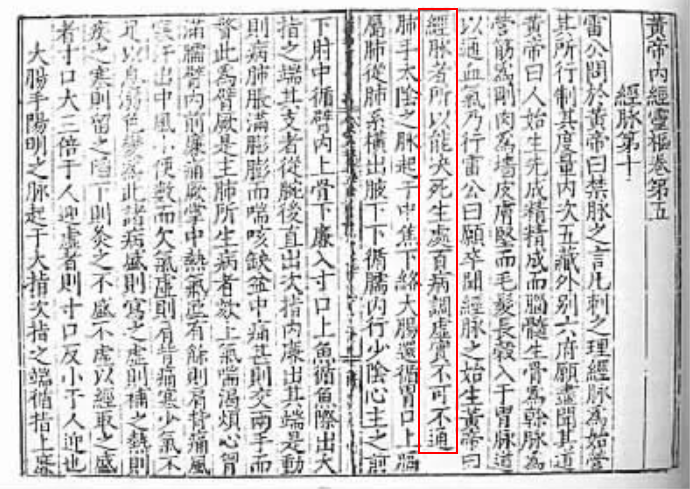 黃帝內經靈樞卷第五
經脉第十
雷公問於黃帝曰禁脉之言凡刺之理經脉爲始營
其所行制其度量內次五藏外別六府願盡聞其道
黃帝曰人始生先成精精成而腦髓生骨爲幹脉爲
營筋爲剛肉爲墻皮膚堅而毛髮長穀入于胃脉道
以通血氣乃行雷公曰願卒聞經脉之始生黃帝曰
經脉者所以能决死生處百病調虛實不可不通
肺手太陰之脉起于中焦下絡大腸還循胃口上膈
屬肺從肺系橫出腋下下循臑內行少陰心主之前
下肘中循臂內上骨下廉入寸口上魚循魚際出大
指之端其支者從腕後直出次指內廉出其端是動
則病肺脹滿膨膨而喘咳缺盆中痛甚則交兩手而
瞀此爲臂厥是主肺所生病者欬上氣喘渴煩心胷
滿臑臂內前廉痛厥掌中熱氣盛有餘則肩背痛風
寒汗出中風小便數而欠氣虛則肩背痛寒少氣不
足以息溺色變爲此諸病盛則寫之虛則補之熱則
疾之寒則留之陷下則灸之不盛不虛以經取之盛
者寸口大三倍于人迎虛者則寸口反小于人迎也
大腸手陽明之脉起于大指次指之端循指上廉